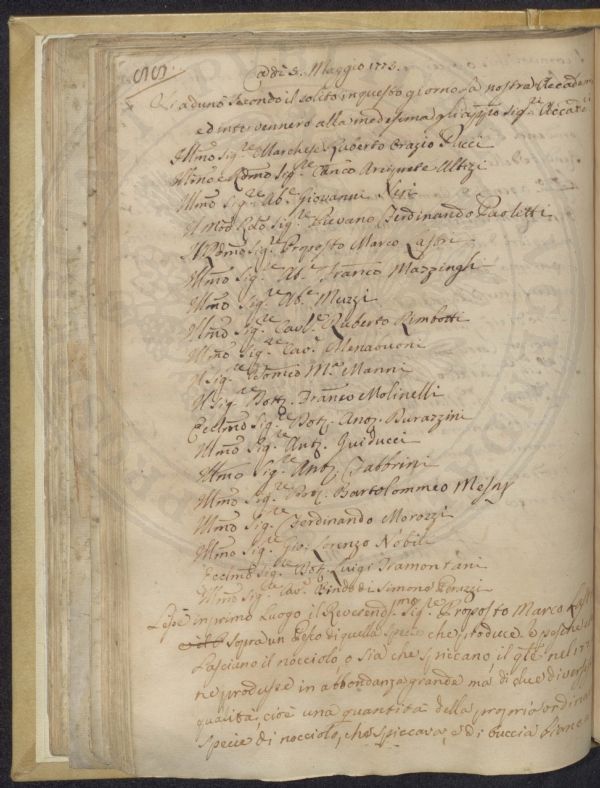 Adì 5. Maggio 1773.
Si adunò secondo il solito in questo giorno la nostra Accadem
ed intervennero alla medesima gl'appresso Sig.ri Accad.ci
Ill.mo Sig.re Marchese Roberto Orazio Pucci
Ill.mo e R.mo Sig.re Can.co Albizi
Ill.mo Sig.re Ab.e Giovanni Neri
Il Mol. R.do Sig.re Pievano Ferdinando Paoletti
Il R.mo Sig.re Proposto Marco Lastri
Ill.mo Sig.re Ab.e Franco Mazzinghi
Ill.mo Sig.re Ab.e Muzzi
Ill.mo Sig.re Cav.e Ruberto Rimbotti
Ill.mo Sig.re Cav.e Menabuoni
Il Sig.re Domco M.a Manni
Il Sig.re Dott. Franco Molinelli
Ecc.mo Sig.re Dott. Ant. Durazzini
Ill.mo Sig.re Ant. Guiducci
Ill.mo Sig.re Ant. Fabbrini
Ill.mo Sig.re Dott. Bartolommeo Mesny
Ill.mo Sig.re Ferdinando Morozzi
Ill.mo Sig.re Gio. Lorenzo Nobili
Ecc.mo Sig.re Dot. Luigi Tramontani
Ill.mo Sig.re Cav.e Bindo di Simone Peruzzi
Lesse in primo luogo il Reverend.mo Sig.re Proposto Marco Lastri
sopra un Pesco di quella specie che produce le pesche
Lasciano il nocciolo, o sia che spiccano, il q.le nel 177
ne produsse in abbondanza grande ma di due diverse
qualità, cioè una quantità della propria ordina
specie di nocciolo, che spiccava, e di buccia bianca